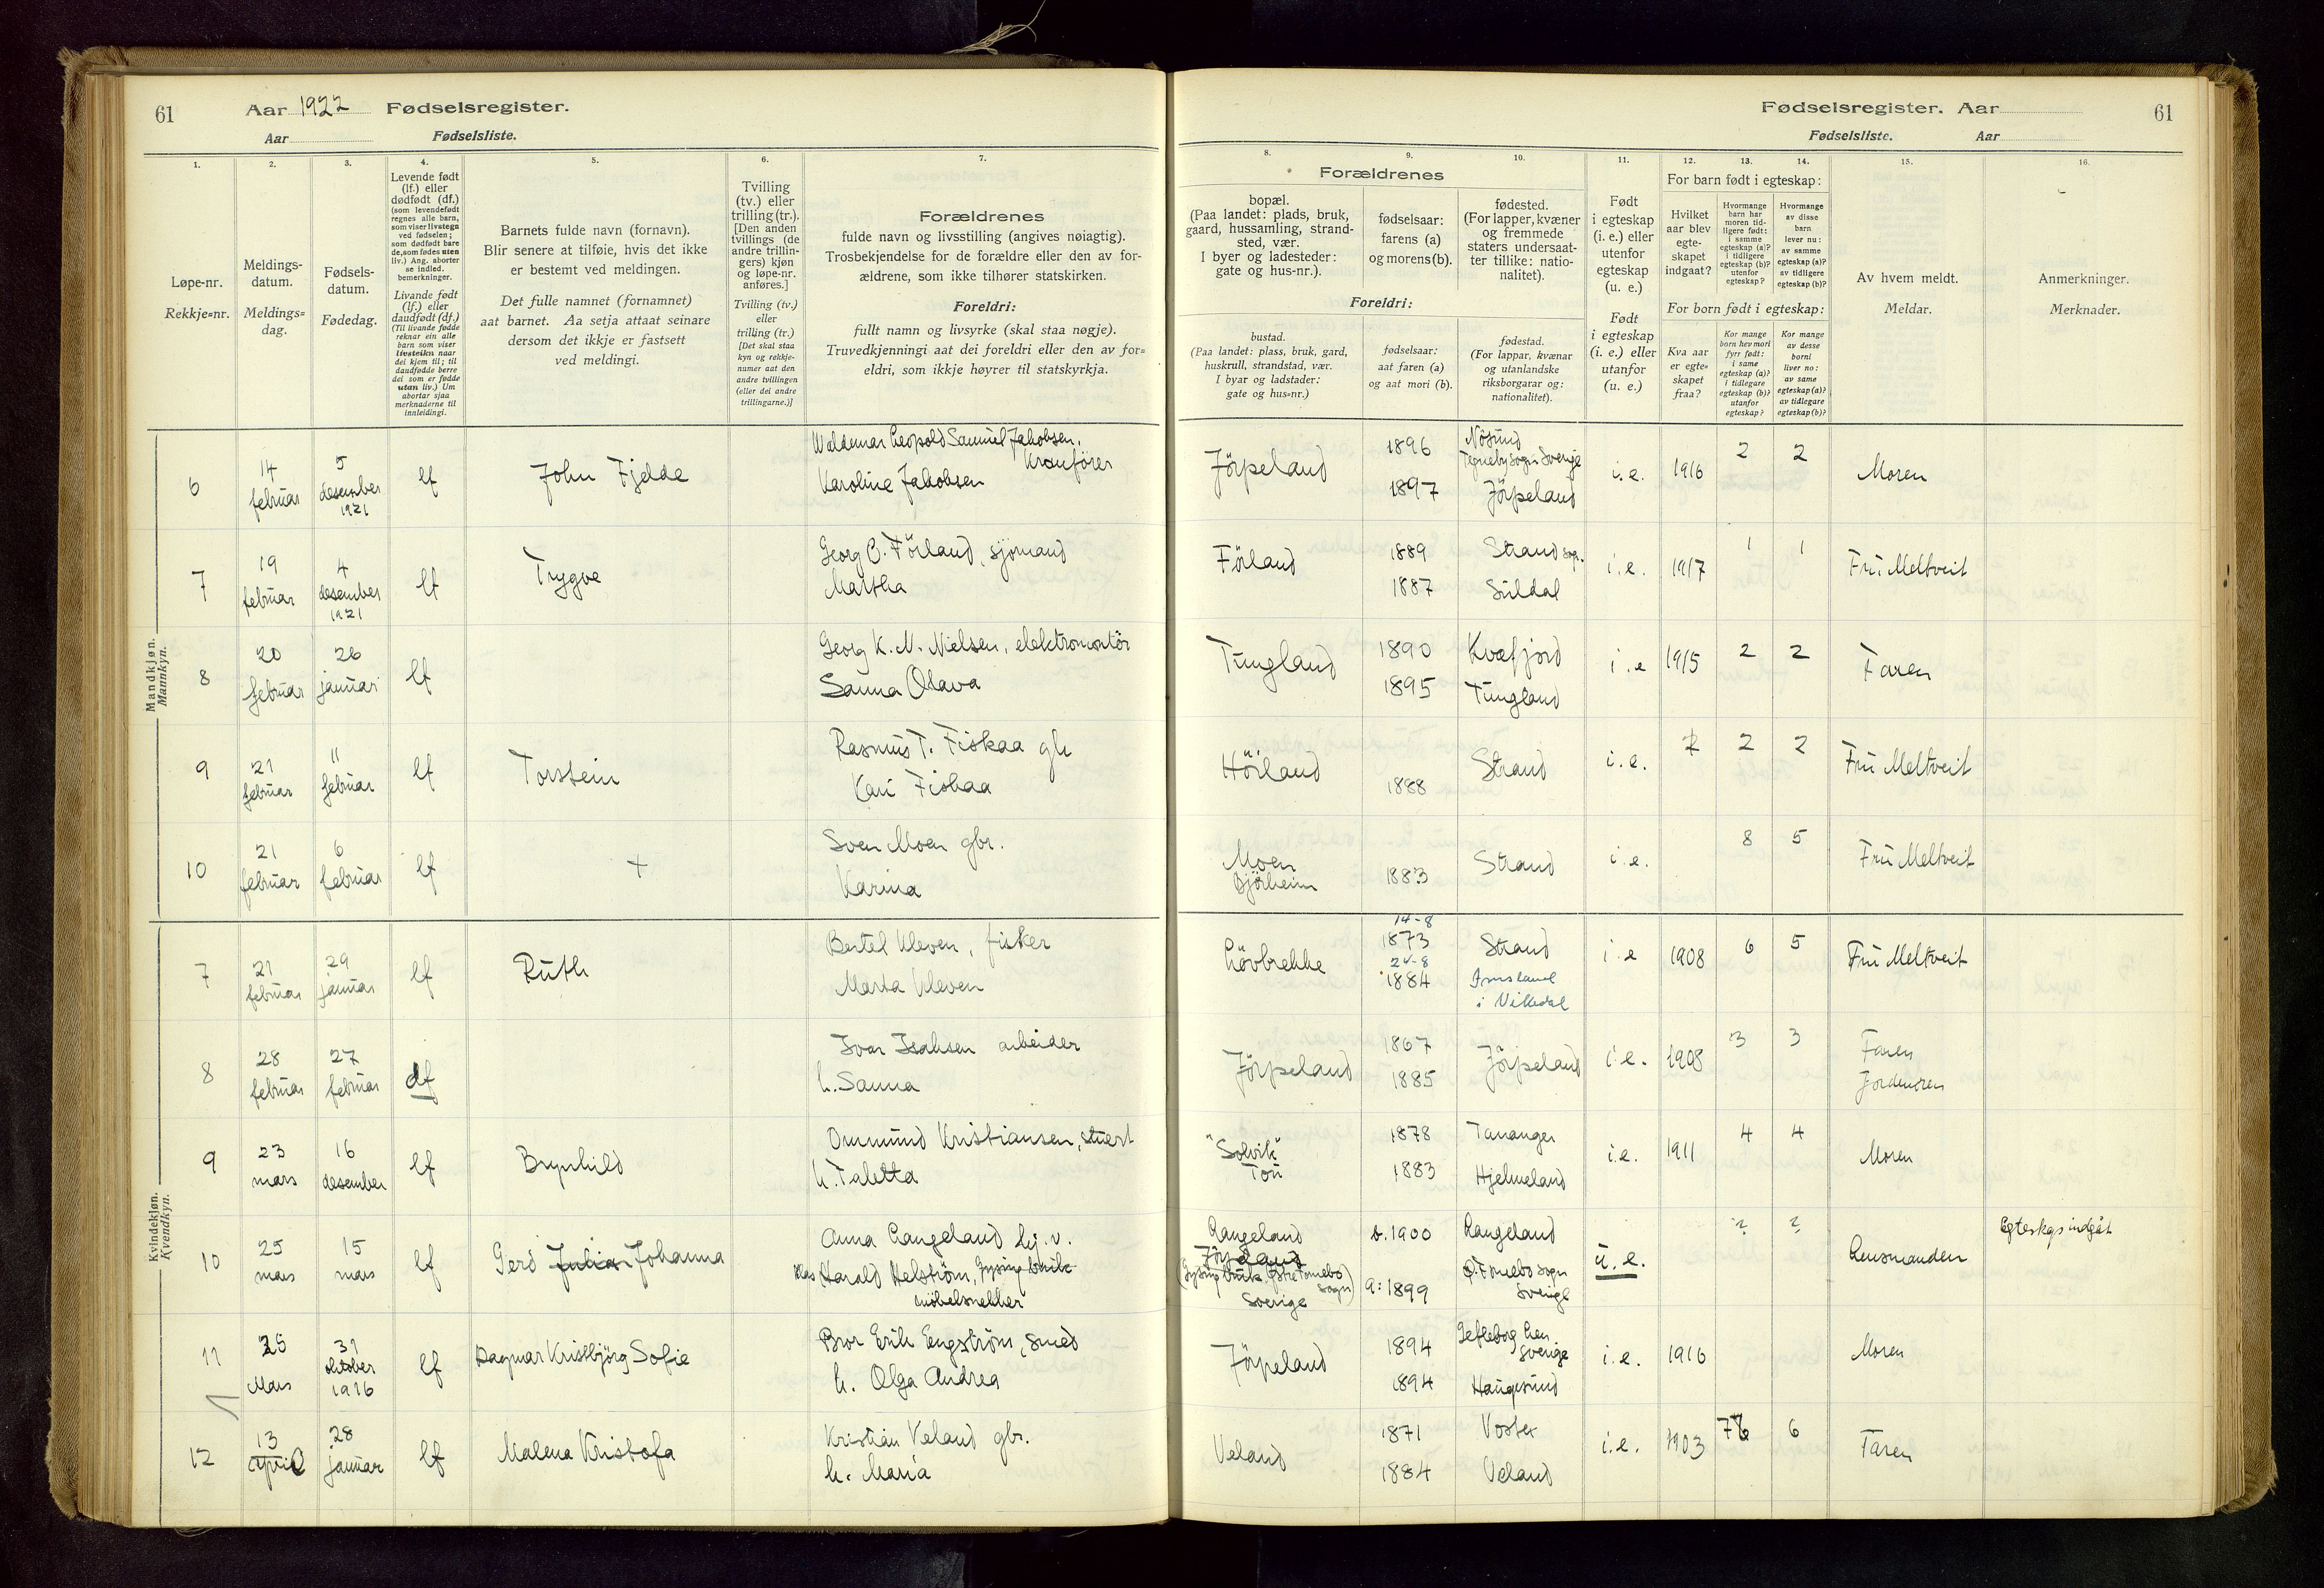 61
Aar 1922 Fødselsregister.
Aar Fødselsliste.
Fødselsregister. Aar
61
Fødselsliste. Aar
1.
2.
3.
4.
5.
6.
7.
8.
9.
10.
11.
12.
13.
14.
15.
16.
Løpe-nr.
Rekkje=nr.
Meldings-
datum.
Meldings=
dag.
Fødsels-
datum.
Fødedag.
Levende født
(lf.) eller
dødfødt (df.)
(som levendefødt
regnes alle barn,
som viser livstegn
ved fødselen;
som dødfødt bare
de, som fødes uten
liv.) Ang. aborter
se indled.
bemerkninger.
Livande født
(lf.) eller
daudfødt (df.)
(Til livande fødde
reknar ein alle
barn som viser
livsteikn naar
dei kjem til; til
daudfødde berre
dei som er fødde
utan liv.) Um
abortar sjaa
merknaderne til
innleidingi.
Barnets fulde navn (fornavn).
Blir senere at tilføie, hvis det ikke
er bestemt ved meldingen.
Det fulle namnet (fornamnet)
aat barnet. Aa setja attaat seinare
dersom det ikkje er fastsett
ved meldingi.
Tvilling
(tv.) eller
trilling (tr.).
[Den anden
tvillings (de
andre trillin-
gers) kjøn
og løpe-nr.
anføres.]
Tvilling (tv.)
eller
trilling (tr.)
[Det skal staa
kyn og rekkje-
numer aat den
andre tvillingen
(eller dei andre
trillingarne.)]
Forældrenes
fulde navn og livsstilling (angives nøiagtig).
Trosbekjendelse for de forældre eller den av for-
ældrene, som ikke tilhører statskirken.
Foreldri:
fullt namn og livsyrke (skal staa nøgje).
Truvedkjenningi aat dei foreldri eller den av for=
eldri, som ikkje høyrer til statskyrkja.
Forældrenes
bopæl.
(Paa landet: plads, bruk,
gaard, hussamling, strand-
sted, vær.
I byer og ladesteder:
gate og hus-nr.).
fødselsaar:
farens (a)
og morens (b).
fødested.
(For lapper, kvæner
og fremmede
staters undersaat-
ter tillike: natio-
nalitet).
Foreldri:
bustad.
(Paa landet: plass, bruk, gard,
huskrull, strandstad, vær.
I byar og ladstader:
gate og hus=nr.)
fødselsaar:
aat faren (a)
og aat mori (b).
fødestad.
(For lappar, kvænar
og utanlandske
riksborgarar og:
nationalitet).
Født
i egteskap
(i. e.) eller
utenfor
egteskap
(u. e.)
Født
i egteskap
(i. e.) eller
utanfor
(u. e.)
For barn født i egteskap:
Hvilket
aar blev
egte-
skapet
indgaat?
Hvormange
barn har
moren tid-
ligere født:
i samme
egteskap (a)?
i tidligere
egteskap (b)?
utenfor
egteskap?
Hvormange
av disse
barn
lever nu:
av samme
egteskap (a)?
av tidligere
egteskap (b)?
For born født i egteskap:
Kva aar
er egte-
skapet
fraa?
Kor mange
born hev mori
fyrr født:
i same
egteskap (a)?
i tidlegare
egteskap (b)?
utanfor
egteskap?
Kor mange
av desse
borni
liver no:
av same
egteskap (a)?
av tidlegare
egteskap (b)?
Av hvem meldt.
Meldar.
Anmerkninger.
Merknader.
Mandkjøn.
Mannkyn.
6 14 februar 5 desember 1921 lf John Fjelde
Waldemar Leopold Samuel Jakobsen, Kranförer
Karoline Jakobsen
Jörpeland 1896 Nösund Tegneby sogn Sverige i.e. 1916 2 2 Moren
1897 Jörpeland
7 19 februar 4 desember 1921 lf Trygve
Georg C. Förland, sjömand
Martha
Förland 1889 Strand sogn. i.e. 1917 1 1 Fru Meltveit
1887 Suldal
8 20 februar 26 januar lf
Georg K. N. Nielsen, elektromontör
Sanna Olava
Tungland 1890 Kvæfjord i.e 1915 2 2 Faren
1895 Tungland
9 21 februar 11 februar lf Torstein
Rasmus T. Fiskaa gb
Kari Fiskaa
Hörland 1888 Strand i.e. 2 2 2 Fru Meltveit
10 21 februar 6 februar lf +
Sven Moen gbr.
Karina
Moen Bjørheim 1883 Strand i.e. 8 5 Fru Meltveit
Kvindekjøn.
Kvendkyn.
7 21 februar 29 januar lf Ruth
Bertel Kleven, fisker
Marta Kleven
Lövbrekke 14-8 1873 Strand i.e 1908 6 5 Fru Meltveit
24-8 1884 i Vikedal
8 28 februar 27 februar df
Ivar Isaksen arbeider
h. Sanna
Jörpeland 1867 Jörpeland i.e. 1908 3 3 Faren
1885 Jordmoren
9 23 mars 16 desember lf Brynhild
Ommund Kristiansen, stuert
h. Taletta
"Solvik" Tou 1878 Tananger i.e. 1911 4 4 Moren
1883 Hjelmeland
10 25 mars 15 mars lf Gerd Julian Johanna
Anna Langeland
Harald Helström, möbelsnekker
Langeland b. 1900 Langeland u.e. ? ? Lensmanden Egteskap indgåt
Jörpeland
Sverige a: 1899 Sverige
11 25 Mars 31 oktober 1916 lf Dagmar Kristbjörg Sofie
Bror Erik Engström, smed
h. Olga Andrea
Jörpeland 1894 Gefleborg len Sverige i.e. 1916 Moren
1894 Haugesund
12 13 april 28 januar lf Malena Kristofa
Kristian Veland gbr.
h. Maria
Veland 1871 Voster i.e. 1903 76 6 Faren
1884 Veland